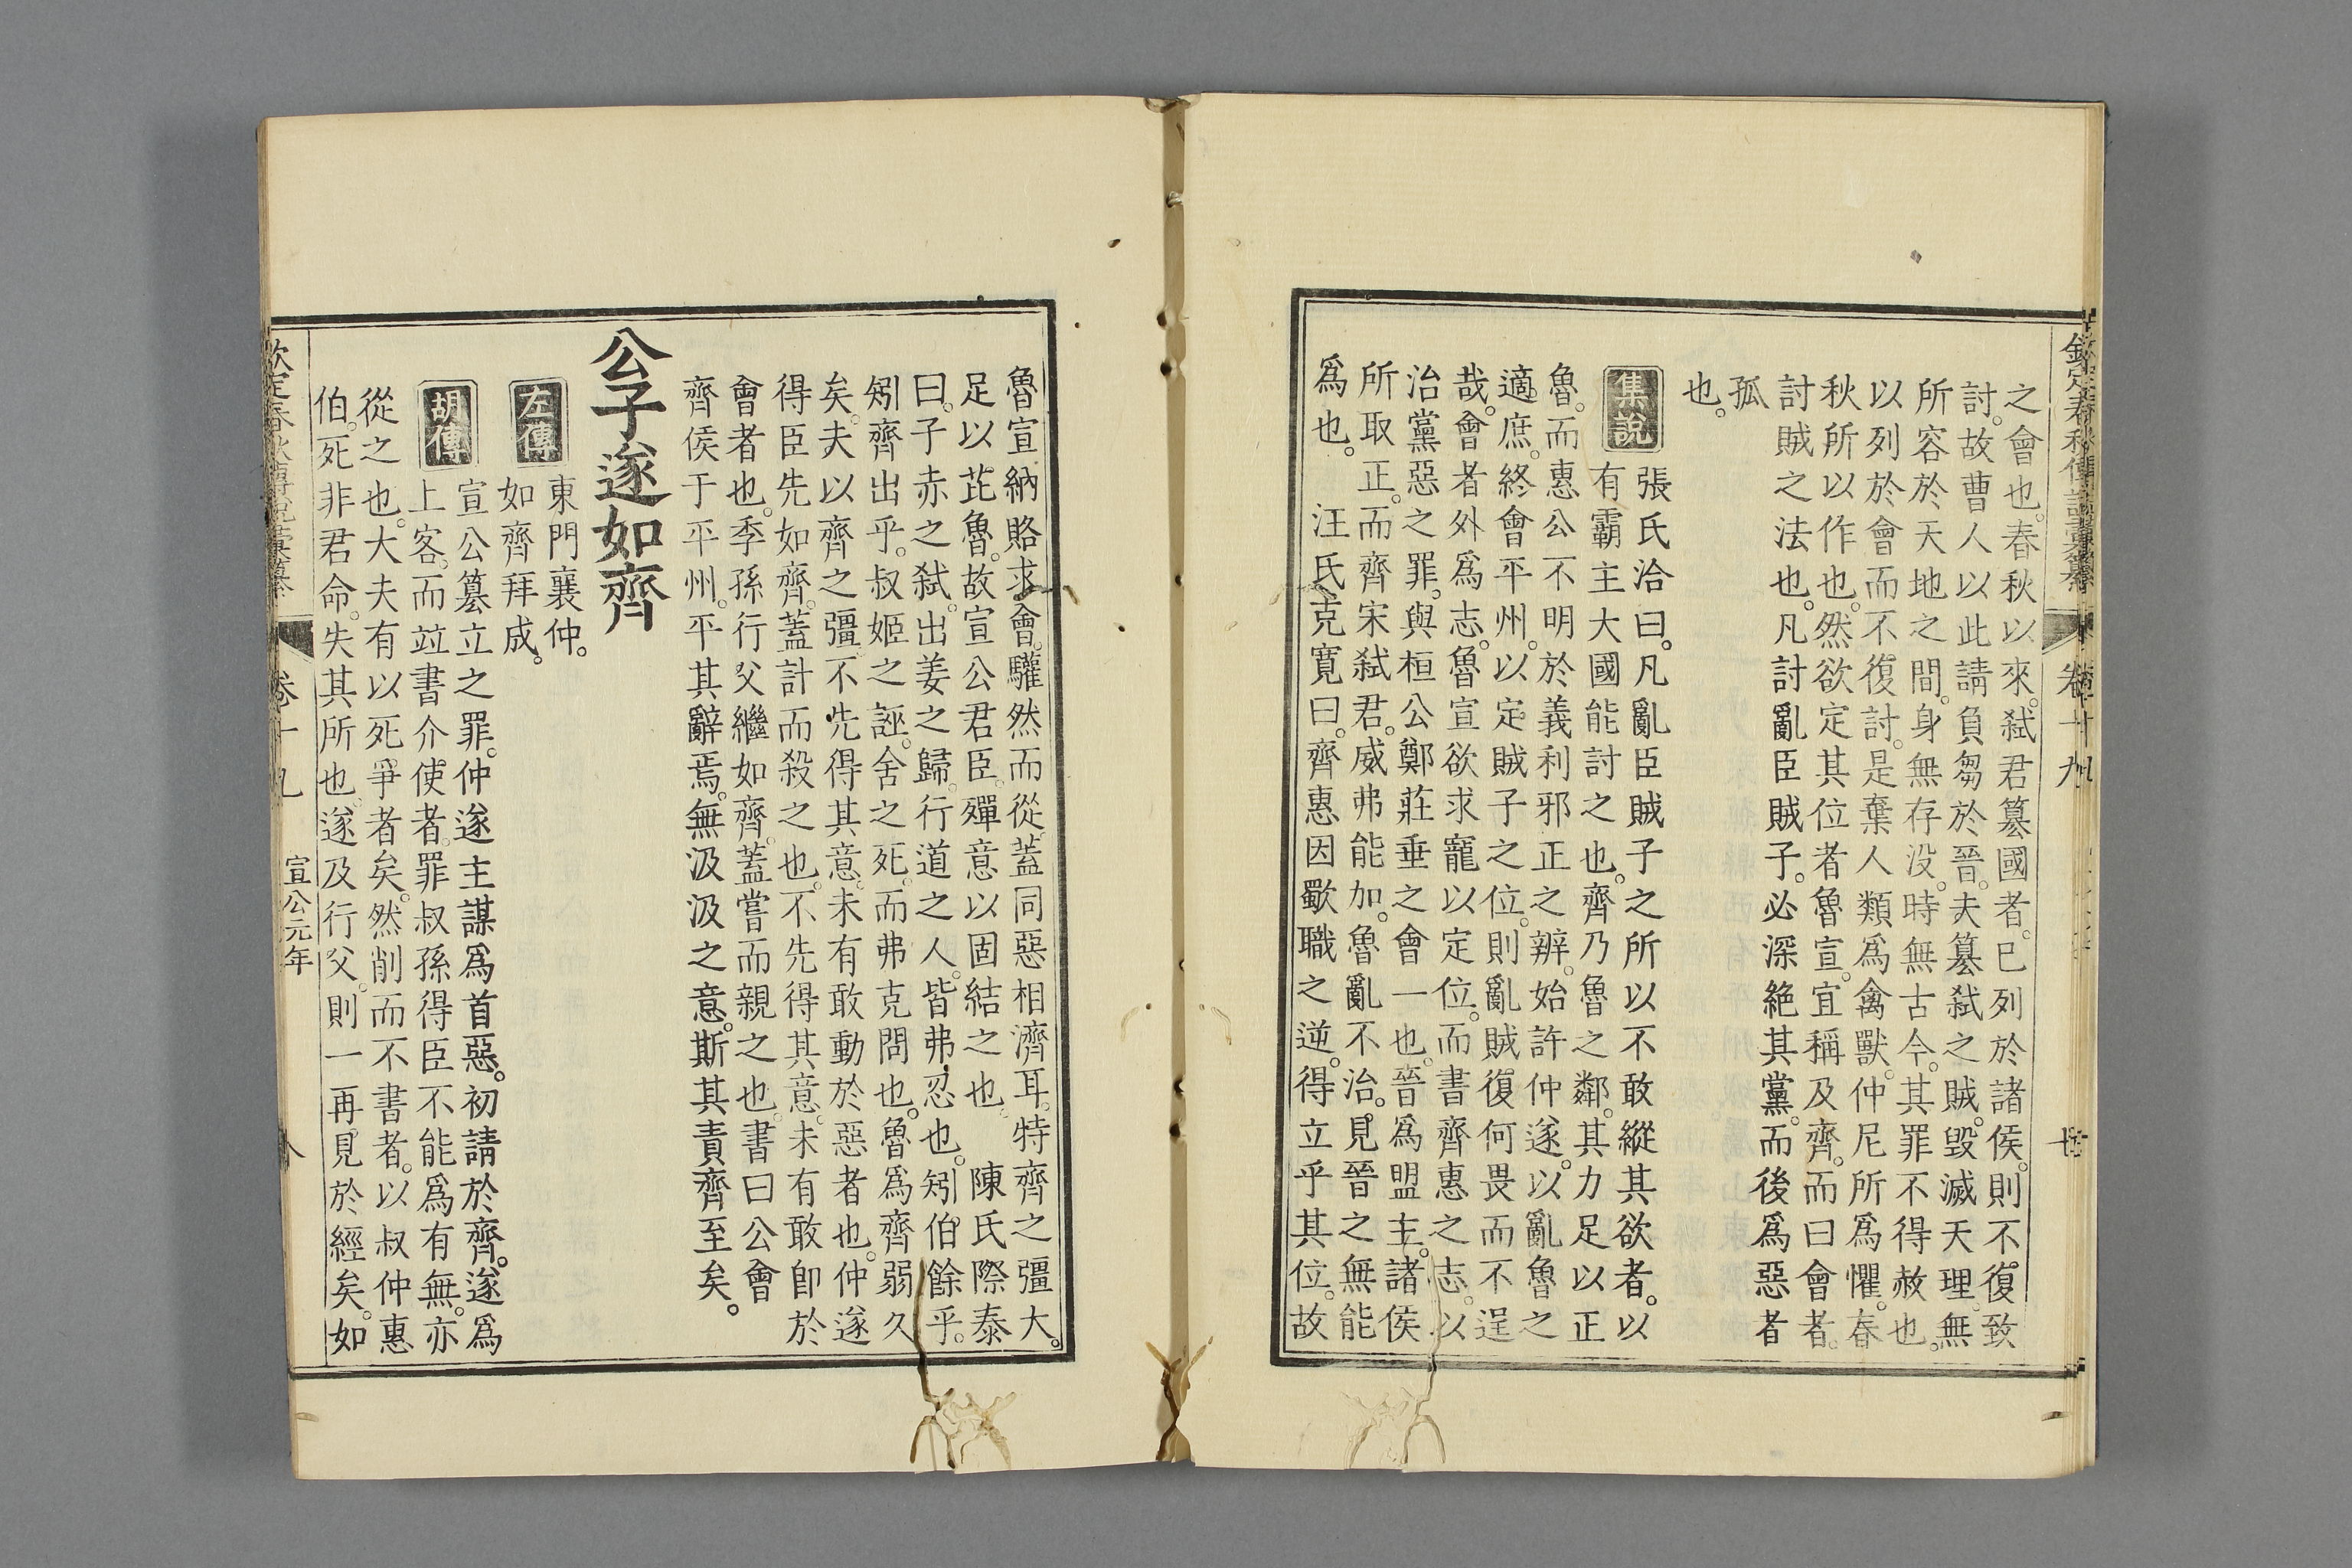 之會也。春秋以來。弑君篡國者。已列於諸侯。則不復致
討。故曹人以此請負芻於晉。夫篡弑之賊。毀滅天理。無
所容於天地之間。身無存没。時無古今。其罪不得赦也。
以列於會而不復討。是棄人類爲禽獸。仲尼所爲懼。春
秋所以作也。然欲定其位者魯宣。宜稱及齊。而曰會者。
討賊之法也。凡討亂臣賊子。必深絶其黨。而後爲惡者
孤
也。
集說
張氏洽曰。凡亂臣賊子之所以不敢縱其欲者。以
有霸主大國能討之也。齊乃魯之鄰。其力足以正
魯。而惠公不明於義利邪正之辨。始許仲遂。以亂魯之
適庶。終會平州。以定賊子之位。則亂賊復何畏而不逞
哉。會者外爲志。魯宣欲求寵以定位。而書齊惠之志。以
治黨惡之罪。與桓公鄭莊垂之會一也。晉爲盟主。諸侯
所取正。而齊宋弑君。威弗能加。魯亂不治。見晉之無能
爲也。 汪氏克寬曰。齊惠因歜職之逆。得立乎其位。故
魯宣納賂求會。驩然而從。蓋同惡相濟耳。特齊之彊大。
足以芘魯。故宣公君臣。殫意以固結之也。 陳氏際泰
曰。子赤之弑。出姜之歸。行道之人。皆弗忍也。矧伯餘乎。
矧齊出乎。叔姬之誣。舍之死。而弗克問也。魯爲齊弱久
矣。夫以齊之彊。不先得其意。未有敢動於惡者也。仲遂
得臣先如齊。蓋計而殺之也。不先得其意。未有敢卽於
會者也。季孫行父繼如齊。蓋嘗而親之也。書曰公會
齊侯于平州。平其辭焉。無汲汲之意。斯其責齊至矣。
公子遂如齊
左傳
東門襄仲。
如齊拜成。
胡傳
宣公篡立之罪。仲遂主謀爲首惡。初請於齊。遂爲
上客。而竝書介使者。罪叔孫得臣不能爲有無。亦
從之也。大夫有以死爭者矣。然削而不書者。以叔仲惠
伯。死非君命。失其所也。遂及行父。則一再見於經矣。如
卷十九 宣公元年